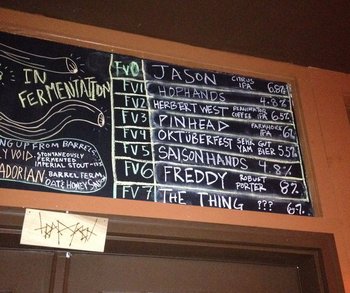 IN
FERMENTATION
NG UP FROM BARRELS
Y VOID - SPONTANEOUSLY
FERMENTED
IMPERIAL STOUT - 11%
ADORIAN. BARREL FERM.
OAT & HONEY
FV0 JASON CITRUS IPA 6.8%
FV1 HOPHANDS 4.8%
FV2 HERBERT WEST REANIMATING COFFEE IPA 6.5%
FV3 PINHEAD FARMHOUSE IPA 6%
FV4 OKTÜBERFEST SEHR GUT YAM BIER 5.5%
FV5 SAISONHANDS 4.8%
FV6 FREDDY ROBUST PORTER 8%
FV7 THE THING ??? 6%